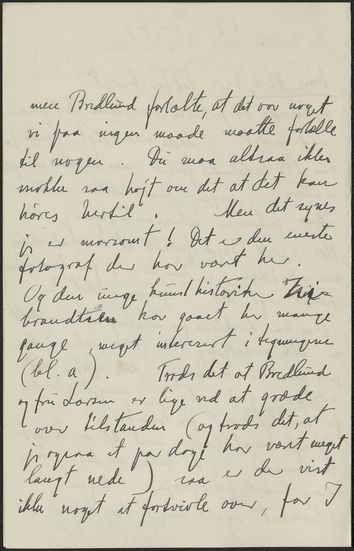 men Bredlund fortalte, at det var noget
vi paa ingen maade maatte fortælle
til nogen. Du maa altsaa ikke
snakke saa højt om det at det kan
høres hertil. Men det synes
jeg er morsomt! Det er den eneste
fotograf der har været her.
Og den unge kunsthistoriker
brandtsen har gaaet her mange
gange, meget interesseret i tegningerne
(bl. a). Trods det at Bredlund
og fru Larsen er lige ved at græde
over tilstanden (og trods det, at
jeg ogsaa et par dage har været meget
langt nede) saa er der vist
ikke noget at fortvivle over, for I